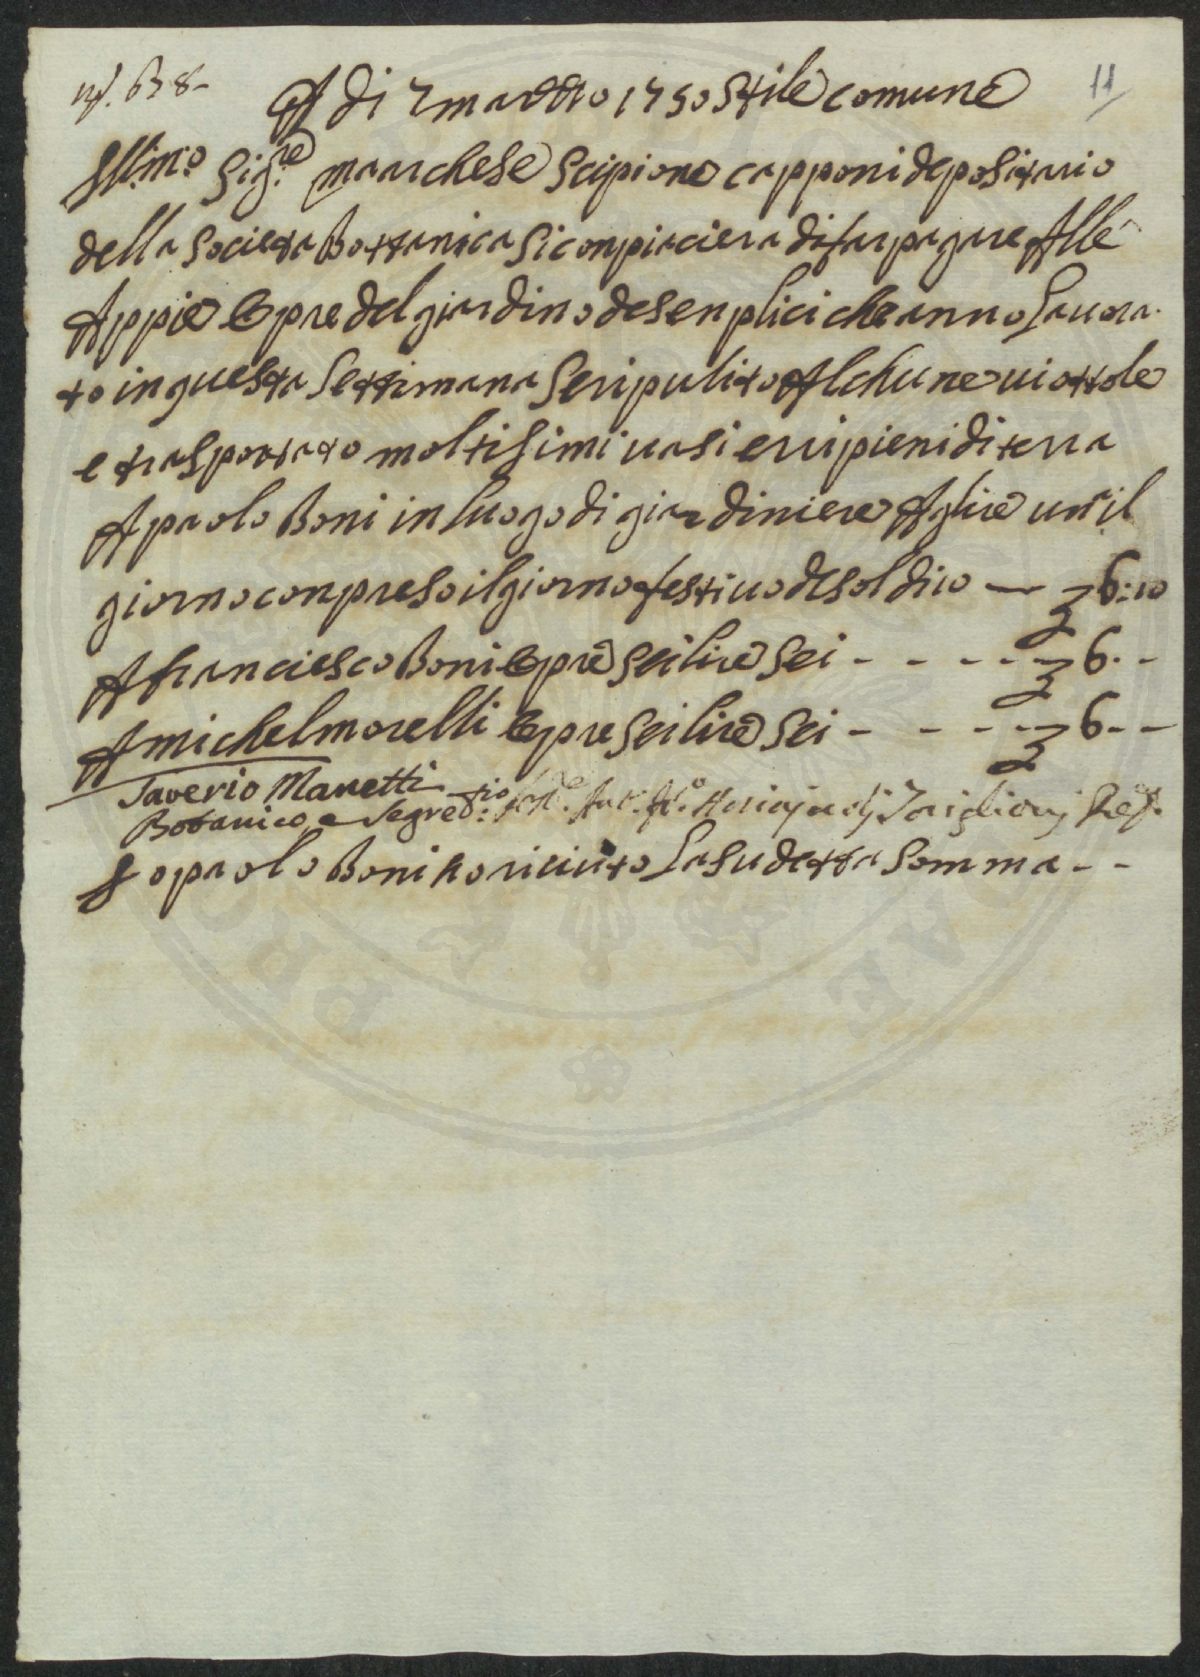 11
A di 7 martto 1750 Stile comune
Ill.mo Sig.re maarchese Scipione capponi depositario
della Societa Bottanica Si conpiaciera di far pagare Alle
Appie Opre del giardino de Senplici che anno Lauora-
to in questa Settimana Se ripulito Alchune uiottole
e trasportato moltisimi uasi e rripieni di terra
A paolo Boni in luogo di giardiniere A lire un il
giorno conpreso il giorno festiuo de soldi 10 — 6:10
A franciesco Boni Opre Sei lire Sei - - - - - 6 - -
A michel morelli Opre Sei lire Sei - - - - 6 - -
Saverio Manetti
Botanico e Segret.rio
Io paolo Boni ho riceuto La sudetta Somma - -